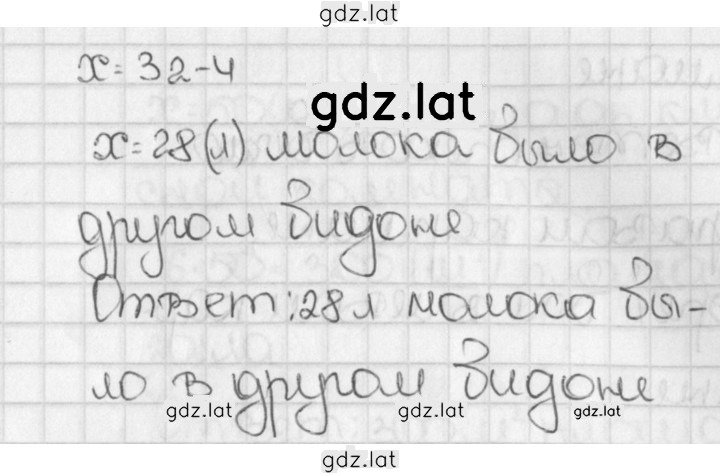 gdz.lat
x=32-4
gdz.lat
x=28(л) молока было в
другом бидоне
Ответ: 28 л молока бы-
ло в другом бидоне
gdz.lat gdz.lat gdz.lat
gdz.lat